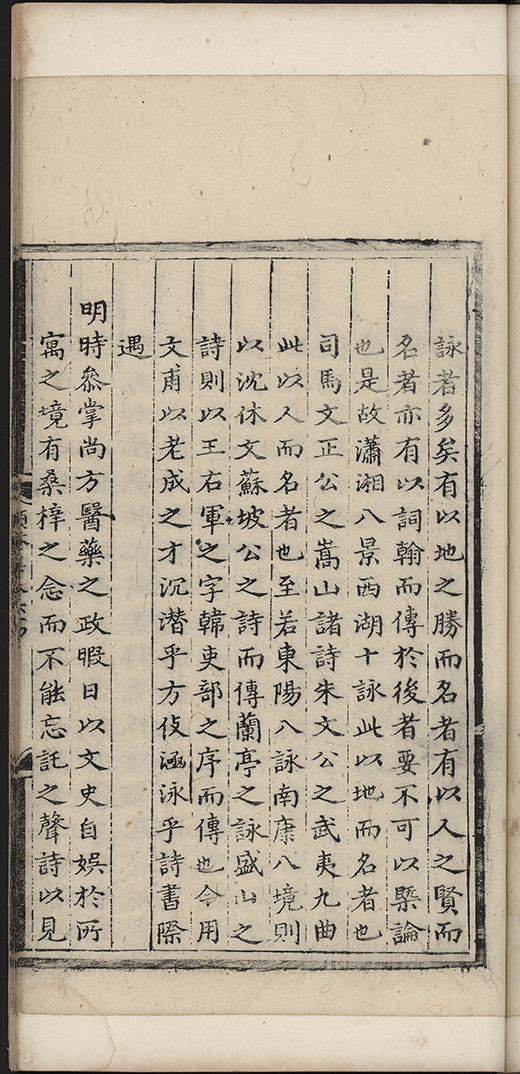 詠者多矣有以地之勝而名者有以人之賢而
名者亦有以詞翰而傳於後者要不可以槩論
也是故瀟湘八景西湖十詠此以地而名者也
司馬文正公之嵩山諸詩朱文公之武夷九曲
此以人而名者也至若東陽八詠南康八境則
以沈休文蘇坡公之詩而傳蘭亭之詠盛山之
詩則以王右軍之字韓吏部之序而傳也今用
文甫以老成之才沉潛乎方伎涵泳乎詩書際
遇
明時叅掌尚方醫藥之政暇日以文史自娛於所
寓之境有桑梓之念而不能忘託之聲詩以見